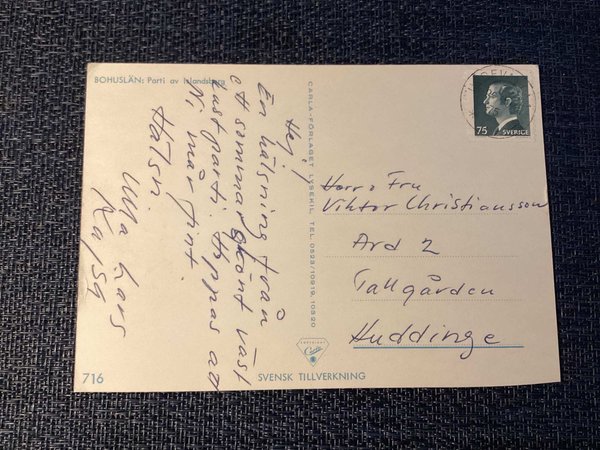 BOHUSLÄN: Parti av Islandsberg
Hej!
En hälsning från
ett sommarskönt väst
kustparti. Hoppas att
Ni mår fint.
Hälsn.
Ulla Lars
Kajsa
CARLA-FÖRLAGET LYSEKIL TEL. 0523/10919, 10520
75 SVERIGE
Herr o Fru
Viktor Christiansson
Avd 2
Tallgården
Huddinge
Carla
716
SVENSK TILLVERKNING